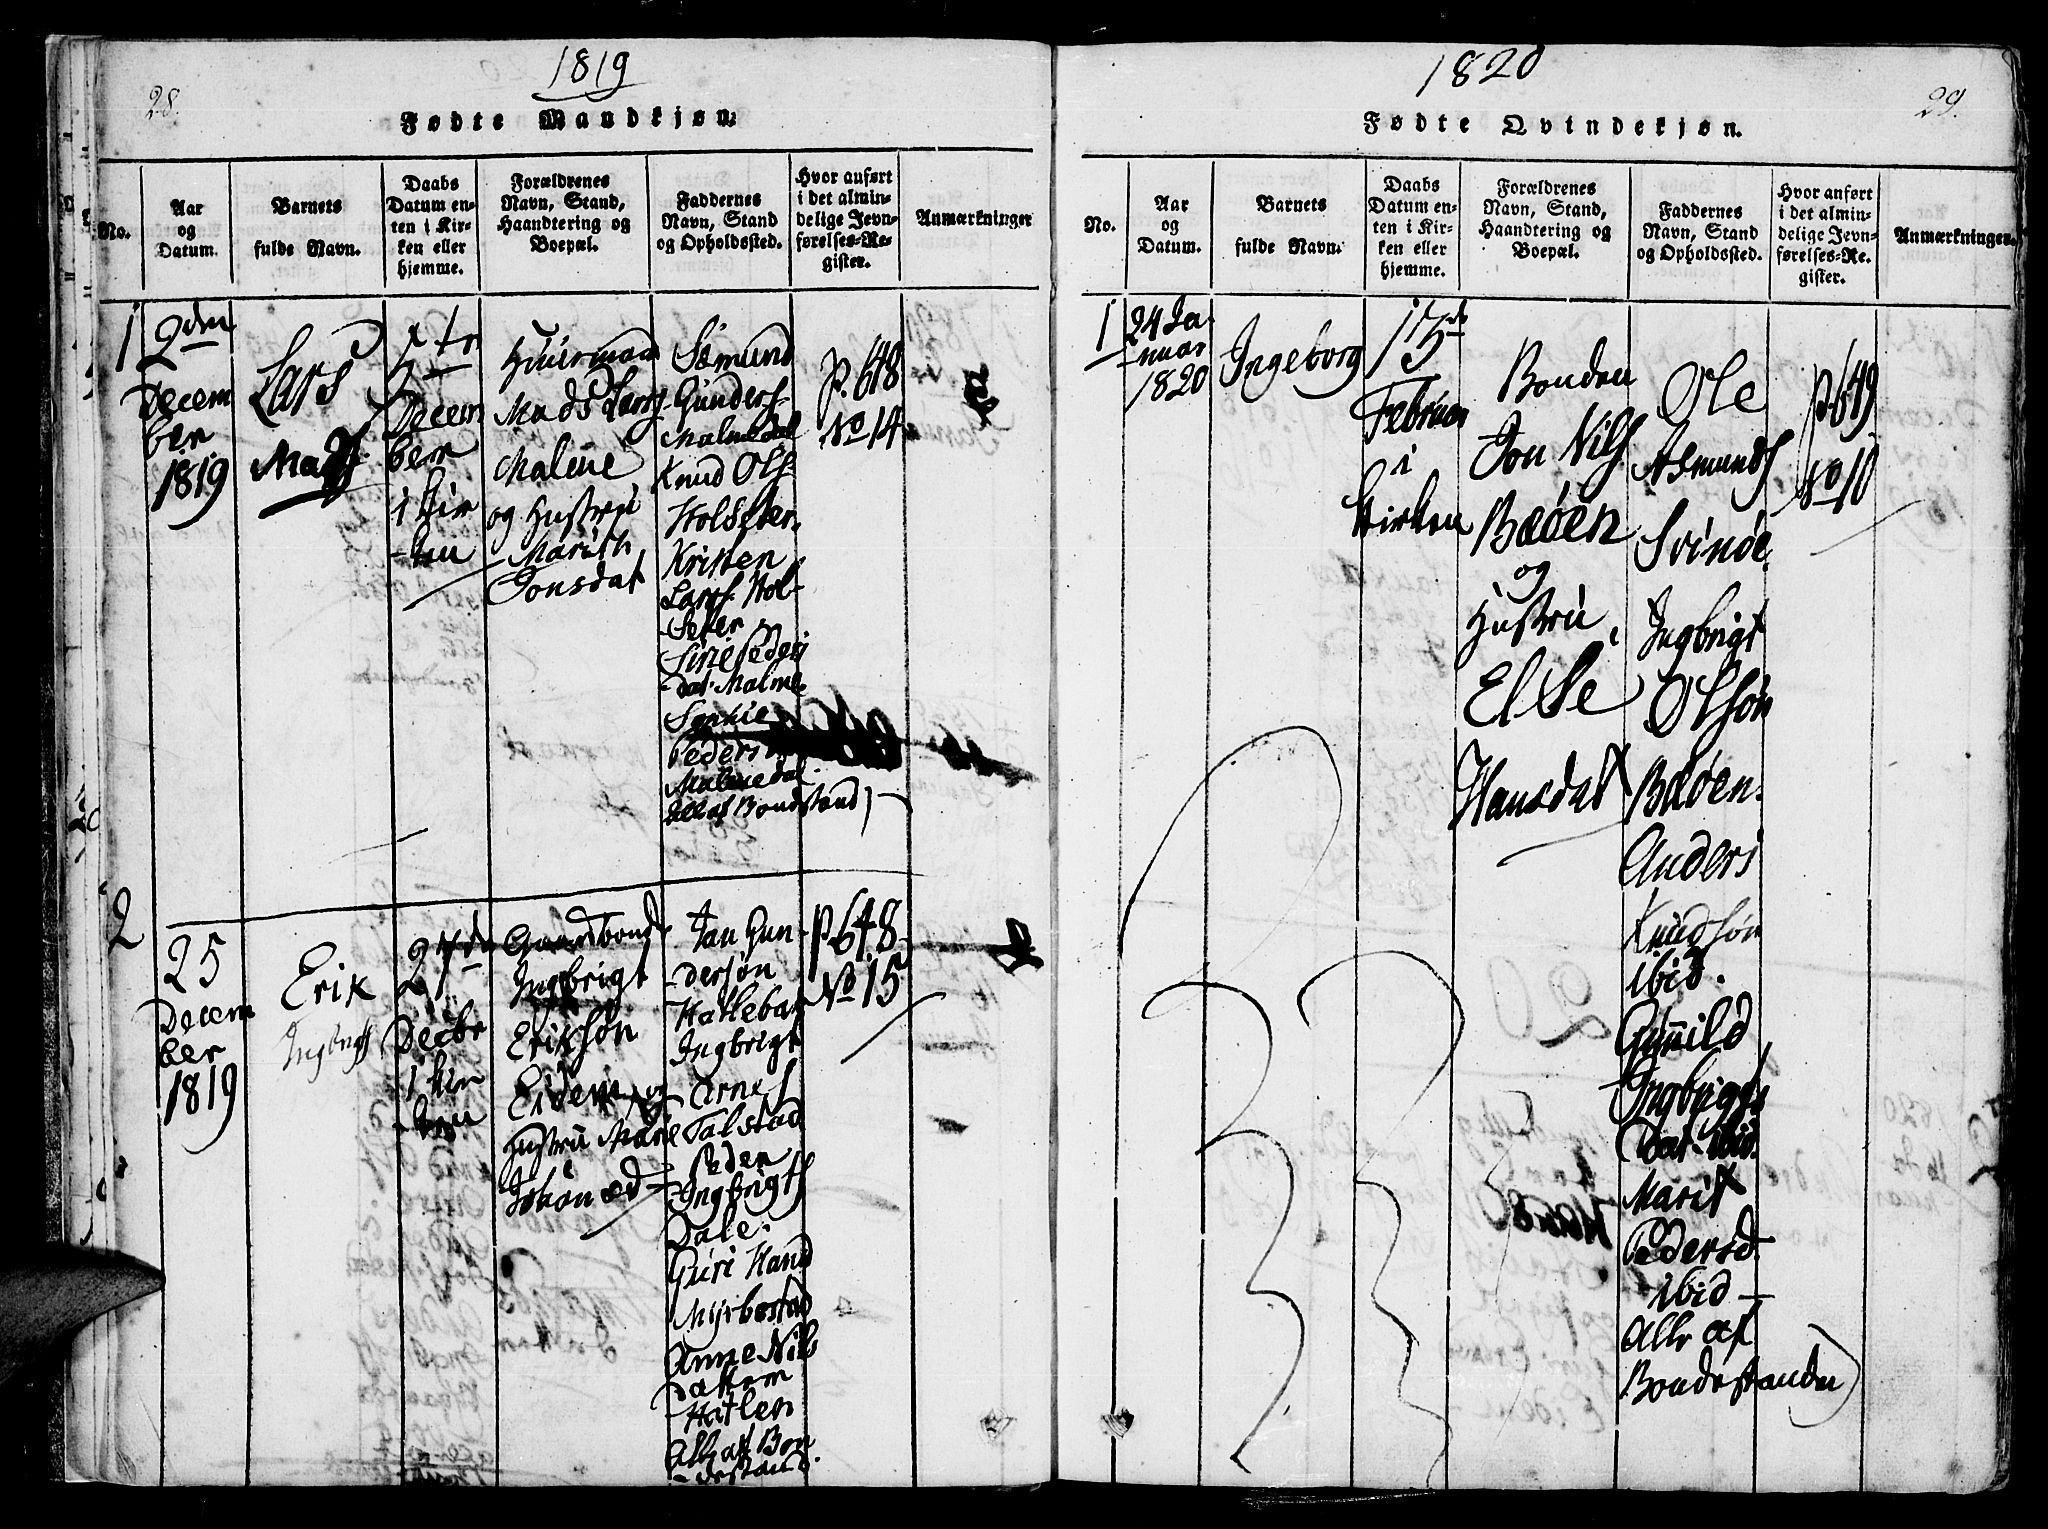 1819
28.
Fødte Mandkjøn.
No.
Aar
og
Datum.
Barnets
fulde Navn.
Daabs
Datum en-
ten i Kir-
ken eller
hjemme.
Forældrenes
Navn, Stand,
Haandtering og
Boepæl.
Faddernes
Navn, Stand
og Opholdssted.
Hvor anført
i det almin-
delige Jevn-
førelses-Re-
gister.
Anmærkninger
1
2den
Decem
ber
1819
Lars
Decem
ber
i Kir
-ken
Huusmand
Mads Lars
Malme
og Hustru
Marith
Jonsdat
Sæmund
Gunders
Malmedal
Knud Ols
Holseter.
Kristen
Lars Hol-
-seter
Siri Peders
-dat. Malme
Peders
Malmedal.
Alle af Bondstand
P. 648
No 14
2
25
Decem
ber
1819
Erik
Ingbrigts
27de
Decbr
i Kir
-ken
Gaardbond
Ingbrigt
Erikson
Eidem og
Hustru Mari
Johansd
Jon Gun-
-dersøn
Ingbrigt
Arnes
Talstad
Peder
Ingbrigts
Dale.
Guri Hansd
Myrbostad
Anne Nils
datter
Hatlen
Alle af Bon
-destand.
P. 648
No 15
1820
29.
Fødte Qvindekjøn.
No.
Aar
og
Datum.
Barnets
fulde Navn.
Daabs
Datum en-
ten i Kir-
ken eller
hjemme.
Forældrenes
Navn, Stand,
Haandtering og
Boepæl.
Faddernes
Navn, Stand
og Opholdssted.
Hvor anført
i det almin-
delige Jevn-
førelses-Re-
gister.
Anmærkninger.
1
24 Ja-
-nuar
1820
Ingeborg
13de
Februar
i
Kirken
Bonden
Jon Nils
Bøen
og
Hustru
Else
Hansdat
Ole
Asmunds
Svinøe.
Ingbrigt
Olsøn
Bøen.
Anders
Knudsøn
ibid.
Gunild
Ingbrigts
Dat. ibid.
Marit
Pedersd
ibid
Alle af
Bondestanden
P. 649
No 10